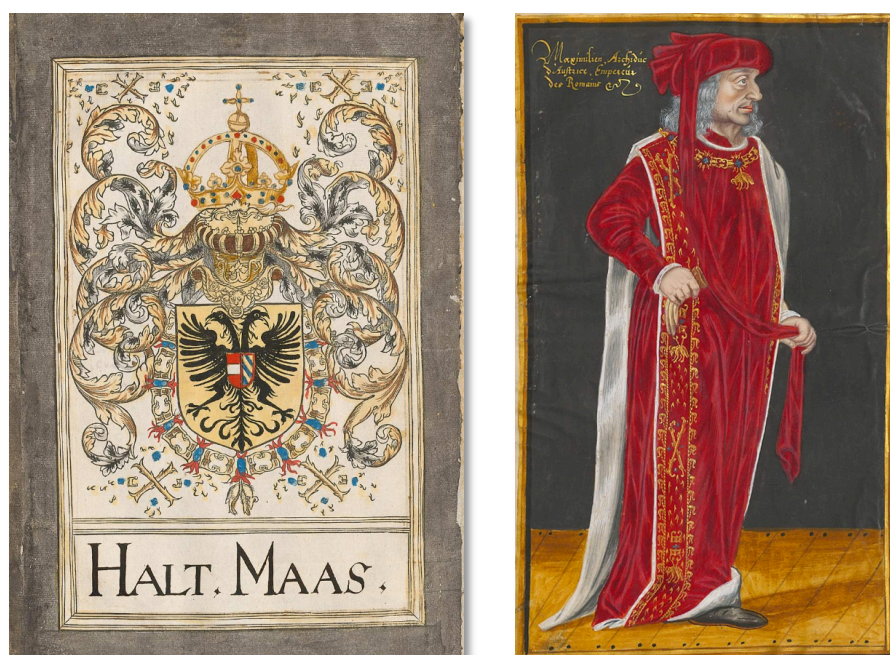 HALT. MAAS.
Maximilien. Archiduc
d'Austrice. Empereur
des Romains